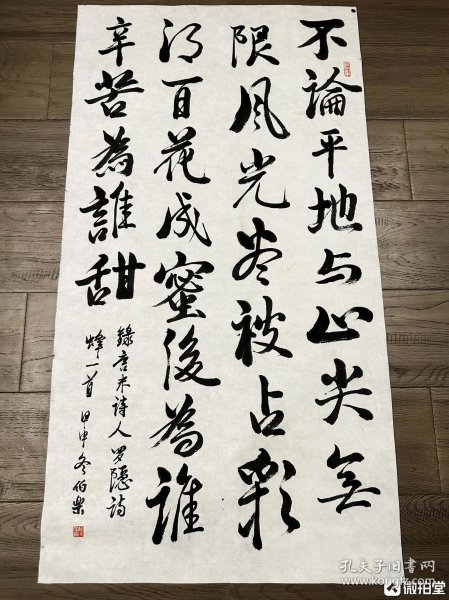 不論平地与山尖無
限风光尽被占彩
得百花成蜜後為誰
辛苦為誰甜
錄唐末诗人罗隐诗
蜂一首 甲申冬伯樂
孔夫子旧书网
www.kongfz.com
微拍堂